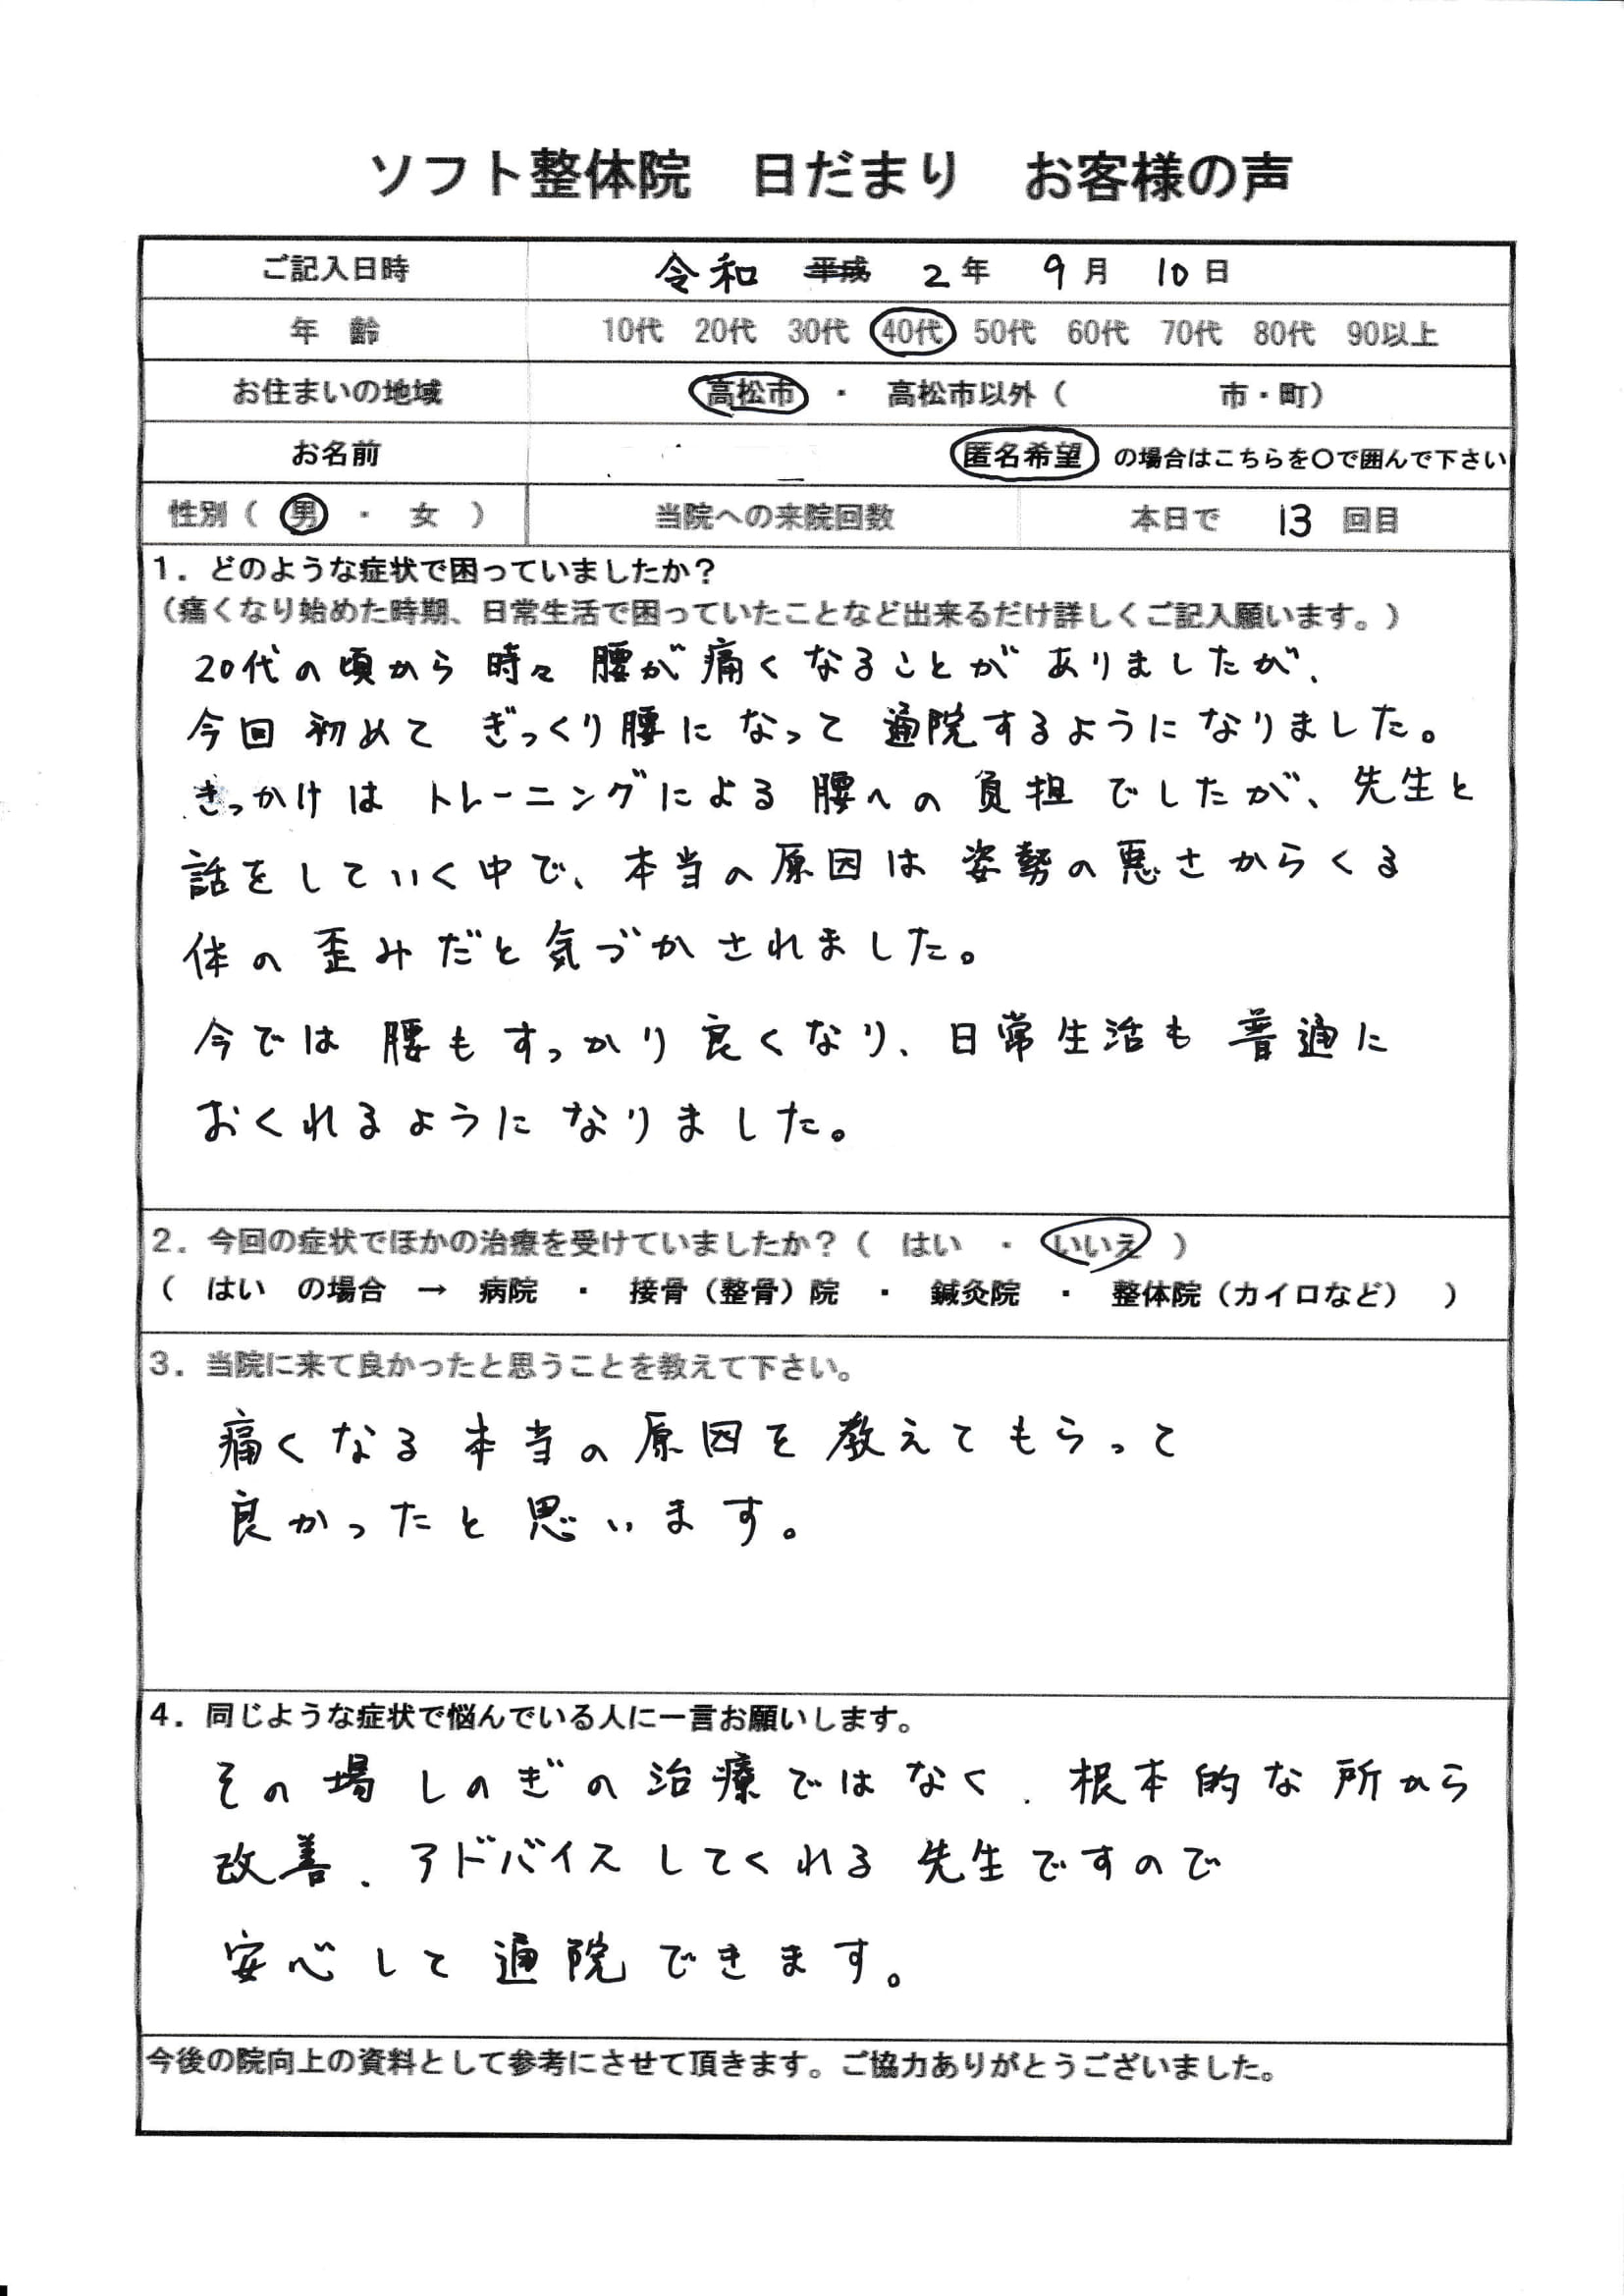 ソフト整体院　日だまり　お客様の声
ご記入日時　令和　平成　2年　9月　10日
年　齢　10代　20代　30代　40代　50代　60代　70代　80代　90以上
お住まいの地域　高松市　・　高松市以外（　　　　　市・町）
お名前　匿名希望　の場合はこちらを〇で囲んで下さい
性別（　男　・　女　）　当院への来院回数　本日で　13　回目
１．どのような症状で困っていましたか？
（痛くなり始めた時期、日常生活で困っていたことなど出来るだけ詳しくご記入願います。）
20代の頃から時々腰が痛くなることがありましたが、
今回初めてぎっくり腰になって通院するようになりました。
きっかけはトレーニングによる腰への負担でしたが、先生と
話をしていく中で、本当の原因は姿勢の悪さからくる
体の歪みだと気づかされました。
今では腰もすっかり良くなり、日常生活も普通に
おくれるようになりました。
２．今回の症状でほかの治療を受けていましたか？（　はい　・　いいえ　）
（　はい　の場合　→　病院　・　接骨（整骨）院　・　鍼灸院　・　整体院（カイロなど）　）
３．当院に来て良かったと思うことを教えて下さい。
痛くなる本当の原因を教えてもらって
良かったと思います。
４．同じような症状で悩んでいる人に一言お願いします。
その場しのぎの治療ではなく、根本的な所から
改善、アドバイスしてくれる先生ですので
安心して通院できます。
今後の院向上の資料として参考にさせて頂きます。ご協力ありがとうございました。